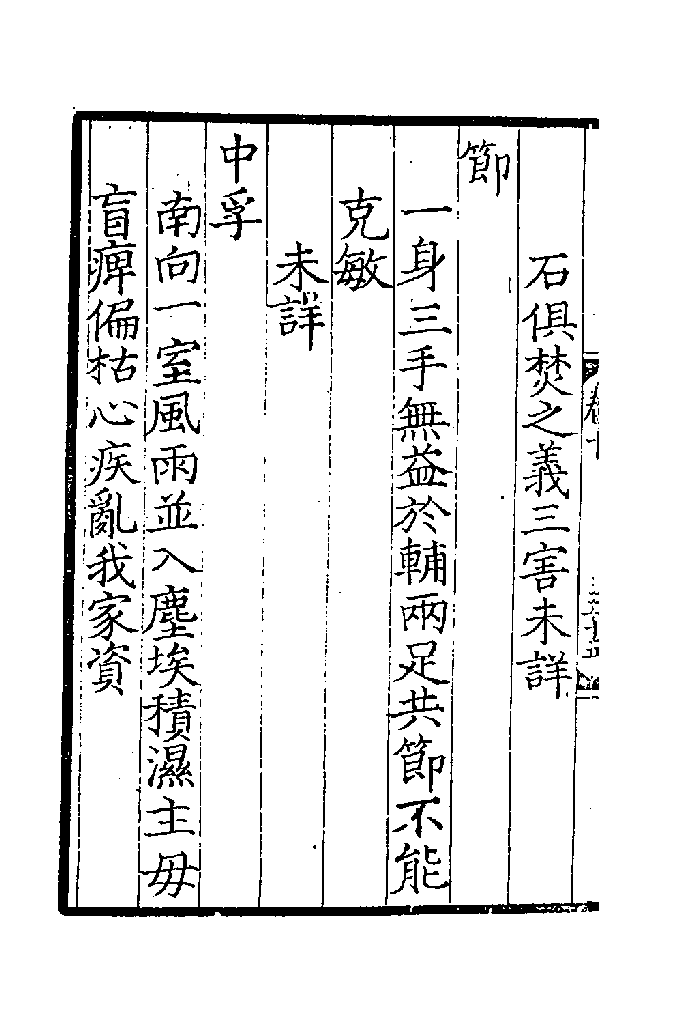 石俱焚之義三害未詳
節
一身三手無益於輔兩足共節不能
克敏
未詳
中孚
南向一室風雨並入塵埃積濕主毋
盲痺偏枯心疾亂我家資